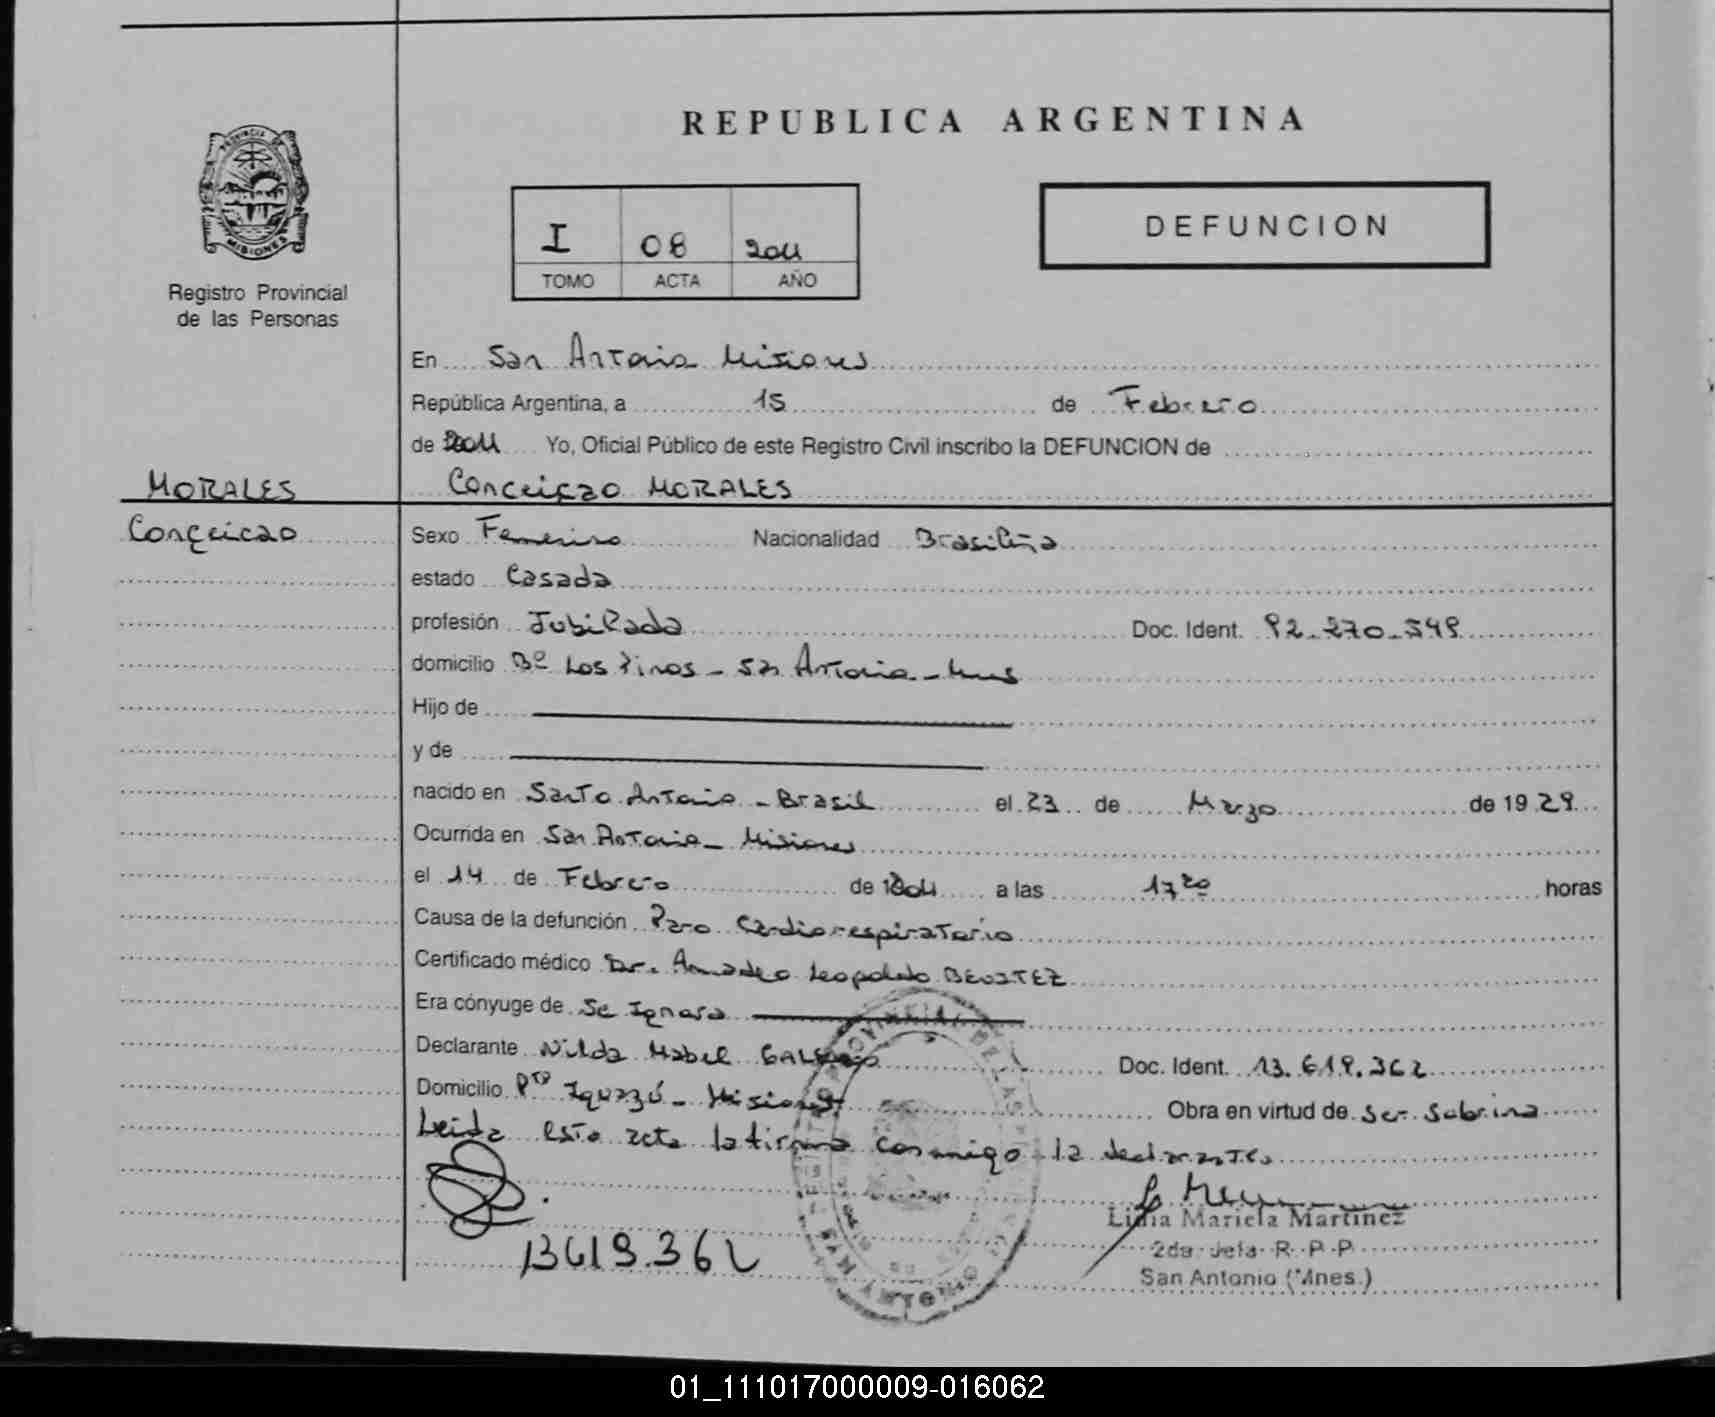 REPUBLICA ARGENTINA
PROVINCIA DE
MISIONES
Registro Provincial
de las Personas
I 08 2011
TOMO ACTA AÑO
DEFUNCION
En San Antonio Misiones
República Argentina, a 15 de Febrero
de 2011 Yo, Oficial Público de este Registro Civil inscribo la DEFUNCION de
MORALES
Conceiçao MORALES
Conçeicao
Sexo Femenino Nacionalidad Brasileña
estado Casada
profesión Jubilada Doc. Ident. 92.270.549
domicilio Bº Los Pinos - San Antonio - Mnes
Hijo de
y de
nacido en Santo Antonio - Brasil el 23 de Marzo de 1929
Ocurrida en San Antonio - Misiones
el 14 de Febrero de 2011 a las 17 20 horas
Causa de la defunción Paro Cardiorespiratorio
Certificado médico Dr. Amadeo Leopoldo BENITEZ
Era cónyuge de Se Ignora
Declarante Nilda Mabel Doc. Ident. 13.619.362
Domicilio Pto Iguazú - Misiones Obra en virtud de ser Sobrina
Leida esta acta la firma conmigo la declarante
13619.362
Lidia Mariela Martinez
2da. Jefa R. P. P.
San Antonio (Mnes.)
SAN ANTONIO
01_111017000009-016062